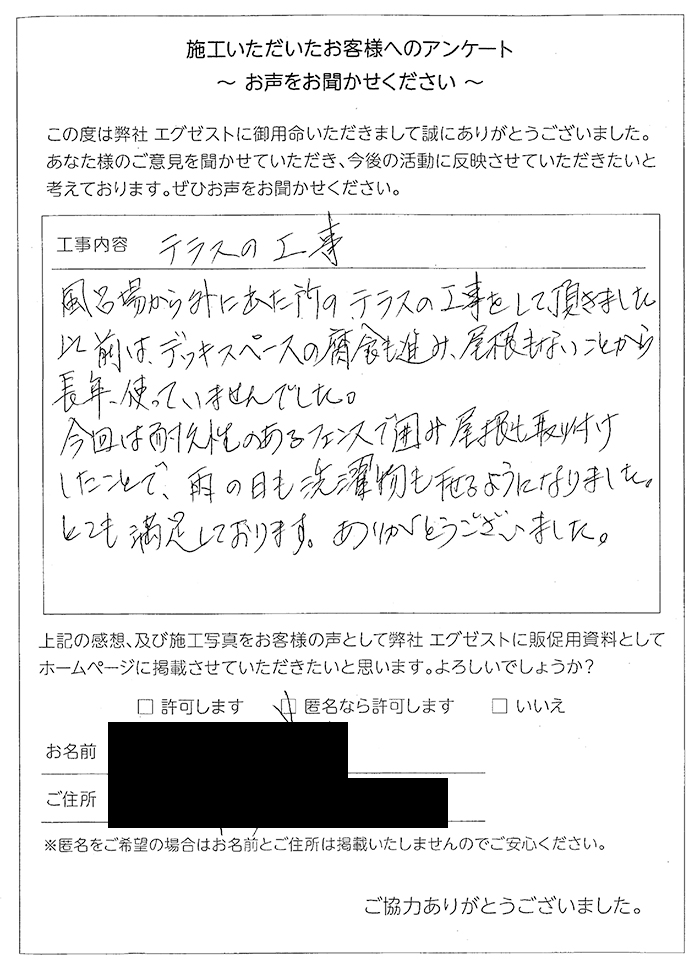 施工いただいたお客様へのアンケート
～ お声をお聞かせください ～
この度は弊社 エグゼストに御用命いただきまして誠にありがとうございました。
あなた様のご意見を聞かせていただき、今後の活動に反映させていただきたいと
考えております。ぜひお声をお聞かせください。
工事内容 テラスの工事
風呂場から外に出た所の、テラスの工事をして頂きました
以前は、デッキスペースの腐食も進み、屋根もないことから
長年、使っていませんでした。
今回は耐久性のあるフェンスで囲み屋根も取り付け
したことで、雨の日も洗濯物も干せるようになりました。
とても満足しております。ありがとうございました。
上記の感想、及び施工写真をお客様の声として弊社 エグゼストに販促用資料として
ホームページに掲載させていただきたいと思います。よろしいでしょうか？
□ 許可します □ 匿名なら許可します □ いいえ
お名前
ご住所
※匿名をご希望の場合はお名前とご住所は掲載いたしませんのでご安心ください。
ご協力ありがとうございました。